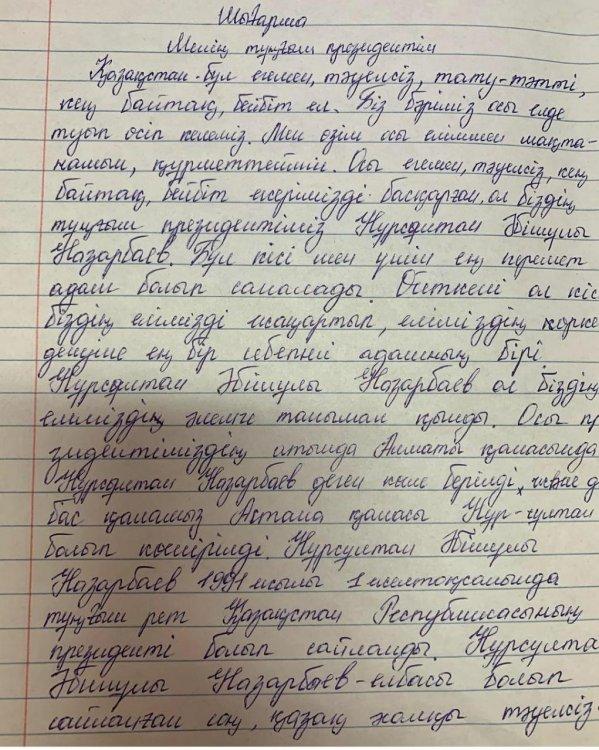 Шығарма
Менің тұңғыш президентім
Қазақстан-бұл егемен, тәуелсіз, тату-тәтті,
кең байтақ, бейбіт ел. Біз бәріміз осы елде
туып өсіп келеміз. Мен өзім осы еліммен мақта-
намын, құрметтеймін. Осы егемен, тәуелсіз, кең
байтақ, бейбіт жерімізді басқарған ол біздің
тұңғыш президентіміз Нұрсұлтан Әбішұлы
Назарбаев. Бұл кісі мен үшін ең керемет
адам болып саналады. Өйткені ол кіс
біздің елімізді жаңартып, еліміздің көрке
деуіне ең бір себепкі адамның бірі.
Нұрсұлтан Әбішұлы Назарбаев ол біздің
еліміздің әлемге танымал қылды. Осы пр
зидентіміздің атында Алматы қаласында
Нұрсұлтан Назарбаев деген көше берілді, және д
бас қаламыз Астана қаласы Нұр-сұлтан
болып көшірілді. Нұрсұлтан Әбішұлы
Назарбаев 1991 жылы 1 желтоқсанында
тұңғыш рет Қазақстан Республикасының
президенті болып сайланды. Нұрсұлта
Әбішұлы Назарбаев-елбасы болып
сайланған соң, қазақ халқы тәуелсіз